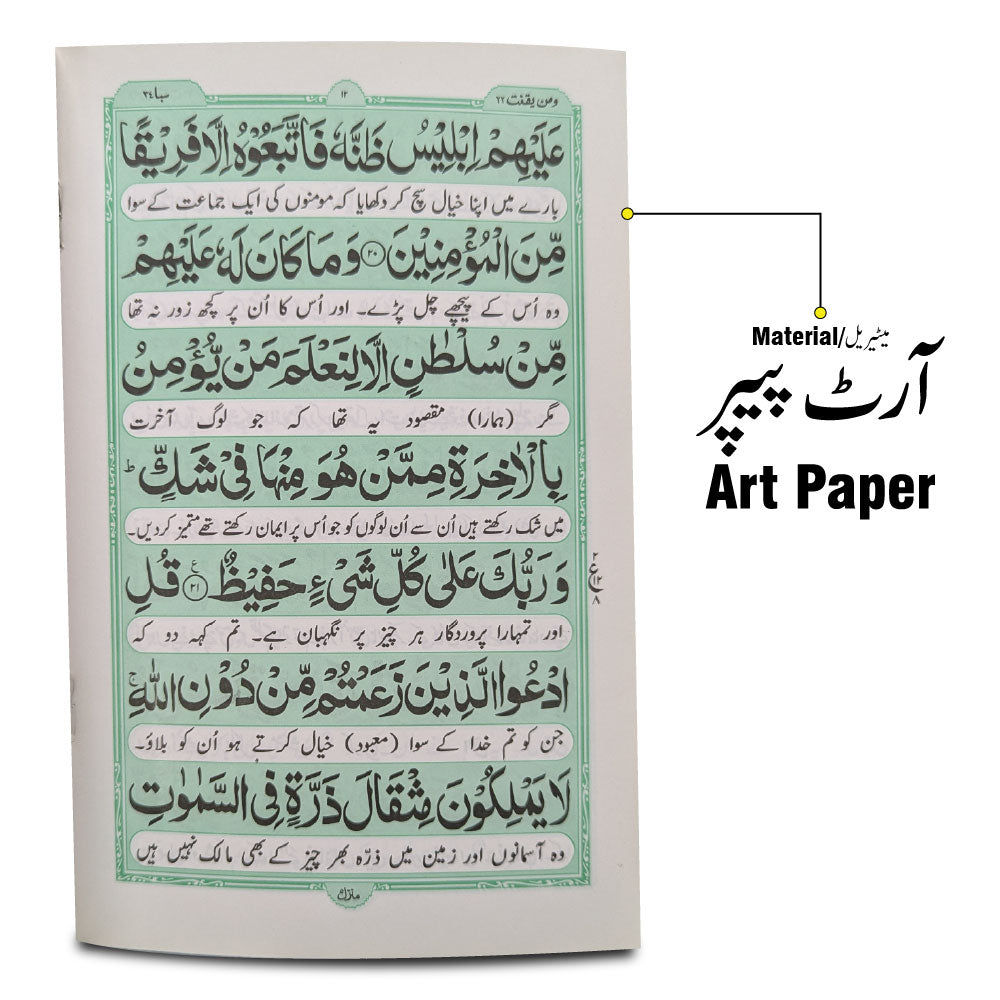 ومن يقنت ٢٢
١٢
سبا ٣٤
عَلَيْهِمْ اِبْلِيْسُ ظَنَّهٗ فَاتَّبَعُوْهُ اِلَّا فَرِيْقًا
بارے میں اپنا خیال سچ کر دکھایا کہ مومنوں کی ایک جماعت کے سوا
مِّنَ الْمُؤْمِنِيْنَ ۝٢٠ وَمَا كَانَ لَهٗ عَلَيْهِمْ
وہ اُس کے پیچھے چل پڑے۔ اور اُس کا اُن پر کچھ زور نہ تھا
مِّنْ سُلْطٰنٍ اِلَّا لِنَعْلَمَ مَنْ يُّؤْمِنُ
مگر (ہمارا) مقصود یہ تھا کہ جو لوگ آخرت
بِالْاٰخِرَةِ مِمَّنْ هُوَ مِنْهَا فِيْ شَكٍّ ؕ
میں شک رکھتے ہیں اُن سے اُن لوگوں کو جو اُس پر ایمان رکھتے تھے متمیز کردیں۔
وَرَبُّكَ عَلٰى كُلِّ شَيْءٍ حَفِيْظٌ ۝٢١ ع قُلِ
٢
ع ١٢
٨
اور تمہارا پروردگار ہر چیز پر نگہبان ہے۔ تم کہہ دو کہ
ادْعُوا الَّذِيْنَ زَعَمْتُمْ مِّنْ دُوْنِ اللّٰهِ ۚ
جن کو تم خدا کے سوا (معبود) خیال کرتے ہو اُن کو بلاؤ۔
لَا يَمْلِكُوْنَ مِثْقَالَ ذَرَّةٍ فِي السَّمٰوٰتِ
وہ آسمانوں اور زمین میں ذرّہ بھر چیز کے بھی مالک نہیں ہیں
Material/میٹیریل
آرٹ پیپر
Art Paper